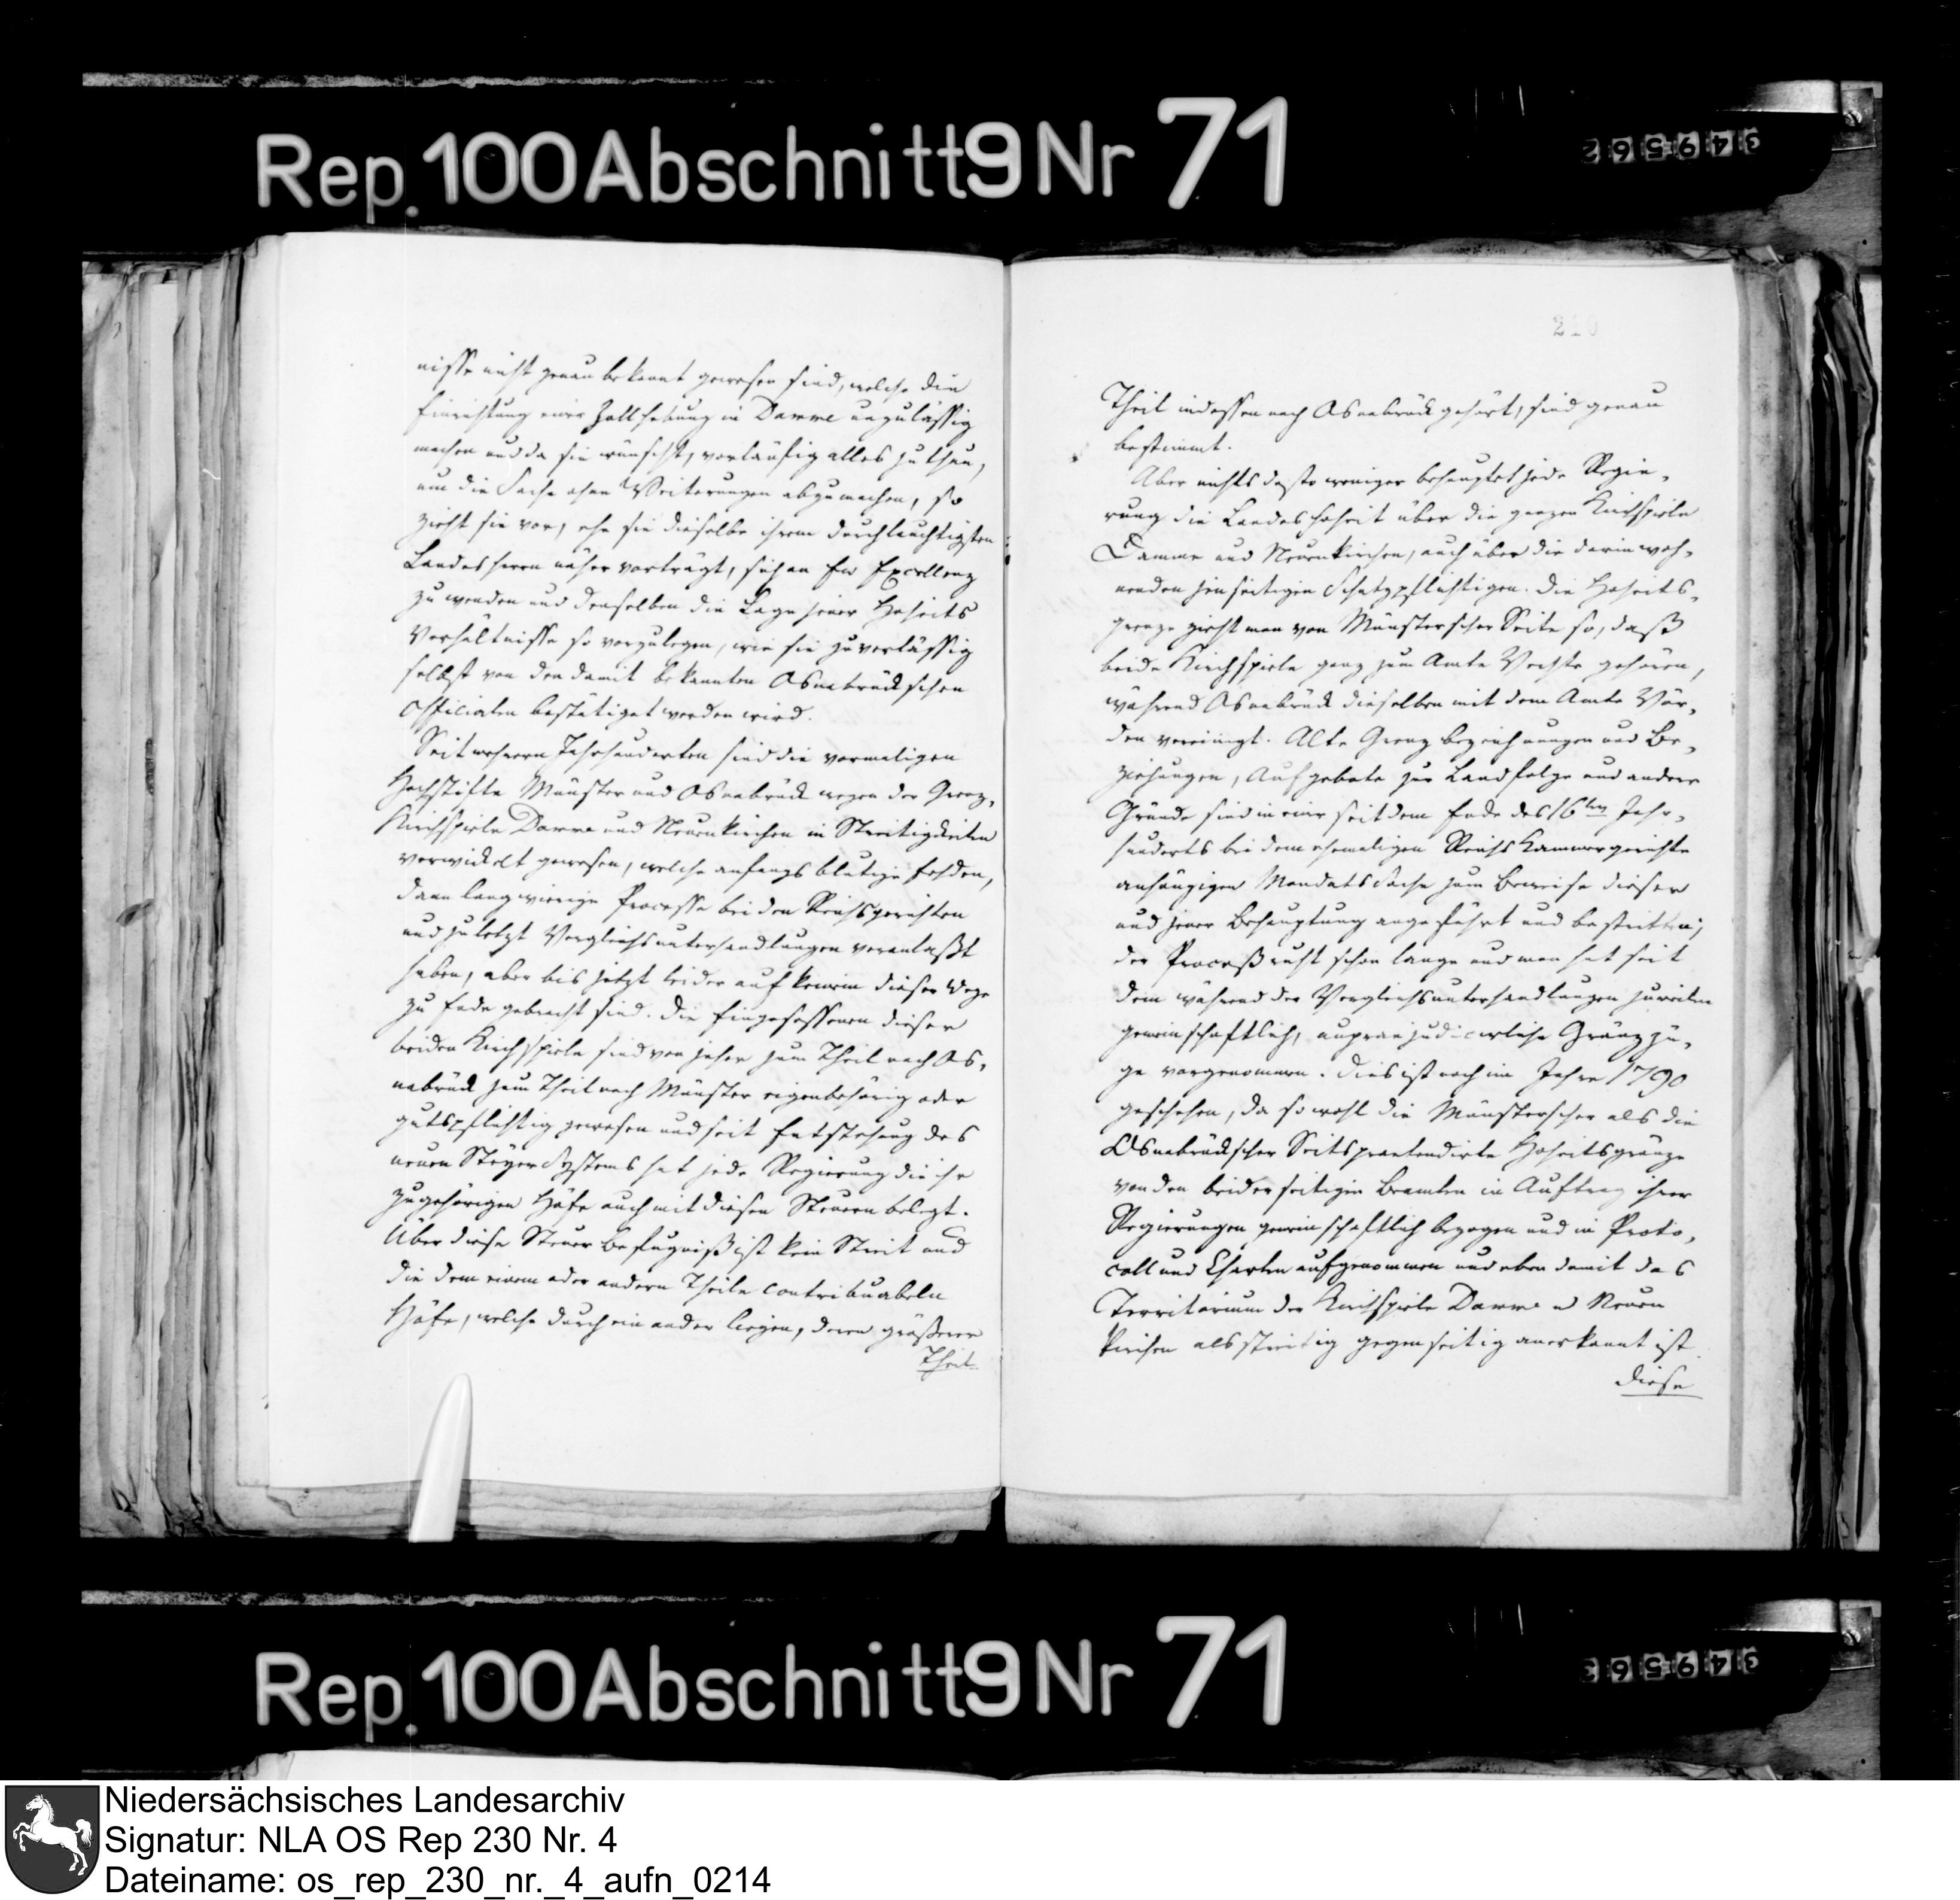 Rep. 100 Abschnitt 9 Nr 71
349562
nisse nicht genau bekannt gewesen sind, welche die
Einrichtung einer Zollhebung in Damme unzulässig
machen und da sie wünscht, vorläufig alles zu thun,
um die Sache ohne Weiterungen abzumachen, so
zieht sie vor, ehe sie dieselbe ihrem durchlauchtigsten
Landesherrn näher vorträgt, sich an Ew Excellenz
zu wenden und denselben die Lage jener Hoheits
Verhältnisse so vorzulegen, wie sie zuverlässig
selbst von den damit bekannten Osnabrückschen
Officialen bestätiget werden wird.
Seit mehrern Jahrhunderten sind die vormaligen
Hochstifte Münster und Osnabrück wegen der Grenz-
Kirchspiele Damme und Neuenkirchen in Streitigkeiten
verwickelt gewesen, welche anfangs blutige Fehden,
dann langwierige Processe bei den Reichsgerichten
und zuletzt Vergleichsunterhandlungen veranlaßt
haben, aber bis jetzt leider auf keinem dieser Wege
zu Ende gebracht sind. Die Eingesessenen dieser
beiden Kirchspiele sind von jeher zum Theil nach Os-
nabrück zum Theil nach Münster eigenbehörig oder
gutspflichtig gewesen und seit Entstehung des
neuen Steuer Systems hat jede Regierung die ihr
zugehörigen Höfe auch mit diesen Steuern belegt.
Über diese Steuer Befugniß ist kein Streit und
die dem einem oder andern Theile contribuabeln
Höfe, welche durch ein ander liegen, deren größerer
Theil
210
Theil indessen nach Osnabrück gehört, sind genau
bestimmt.
Aber nichts desto weniger behauptet jede Regie-
rung die Landeshoheit über die ganzen Kirchspiele
Damme und Neuenkirchen, auch über die darin woh-
nenden jenseitigen Schatzpflichtigen. Die Hoheits-
grenze zieht man von Münsterscher Seite so, daß
beide Kirchspiele ganz zum Amte Vechte gehören,
während Osnabrück dieselben mit dem Amte Vör-
den vereinigt. Alte Grenzbezeichnungen und Be-
ziehungen, Aufgebote zur Landfolge und andere
Gründe sind in einer seit dem Ende des 16ten Jahr-
hunderts bei dem ehemaligen Reichs Kammergerichte
anhängigen Mandats Sache zum Beweise dieser
und jener Behauptung angeführt und bestritten;
der Proceß ruht schon lange und man hat seit
dem während der Vergleichsunterhandlungen zuweilen
gemeinschaftlich, unpraejudicirliche Gränzzü-
ge vorgenommen. Dies ist noch im Jahre 1790
geschehen, da sowohl die Münsterscher als die
Osnabrückscher Seits praetendirte Hoheitsgränze
von den beiderseitigen Beamten in Auftrag ihrer
Regierungen gemeinschaftlich bezogen und in Proto-
coll und Charten aufgenommen und eben damit das
Territorium der Kirchspiele Damme u Neuen
kirchen als streitig gegenseitig anerkannt ist.
Diese
Rep. 100 Abschnitt 9 Nr 71
349563
Niedersächsisches Landesarchiv
Signatur: NLA OS Rep 230 Nr. 4
Dateiname: os_rep_230_nr._4_aufn_0214